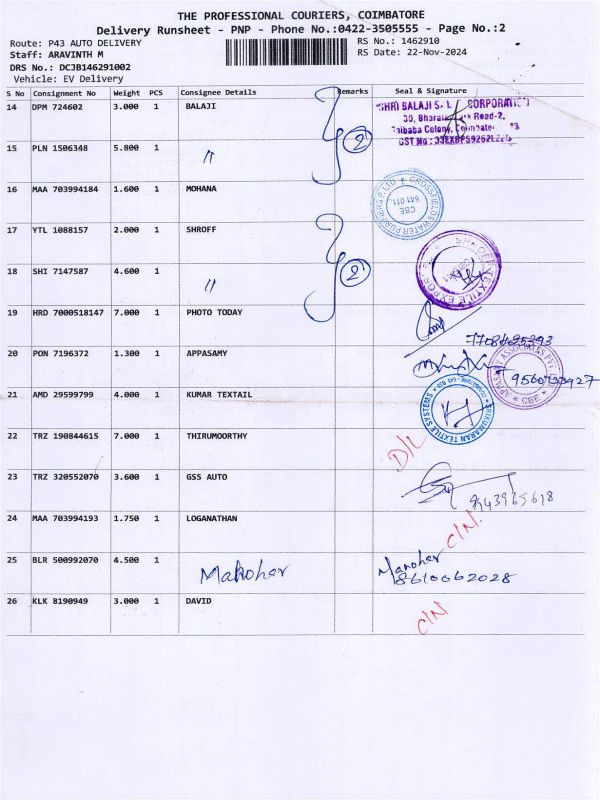 THE PROFESSIONAL COURIERS, COIMBATORE
Delivery Runsheet - PNP - Phone No.:0422-3505555 - Page No.:2
Route: P43 AUTO DELIVERY
RS No.: 1462910
Staff: ARAVINTH M
RS Date: 22-Nov-2024
DRS No.: DCJB146291002
Vehicle: EV Delivery
S No Consignment No Weight PCS Consignee Details Remarks Seal & Signature
14 DPM 724602 3.000 1 BALAJI
SHRI BALAJI CORPORATION
39, Road-2,
Saibaba Colony,
GST No :
15 PLN 1506348 5.800 1 〃 2
16 MAA 703994184 1.600 1 MOHANA
CROSSFIELDS WATER PURIFIERS P. LTD
CBE
641 011
17 YTL 1088157 2.000 1 SHROFF
TEXTILE EXPORTS
18 SHI 7147587 4.600 1 〃 2
19 HRD 7000518147 7.000 1 PHOTO TODAY
20 PON 7196372 1.300 1 APPASAMY
ASSOCIATES PVT
CBE
21 AMD 29599799 4.000 1 KUMAR TEXTAIL
SRIKUMARAN TEXTILE SYSTEMS
22 TRZ 190844615 7.000 1 THIRUMOORTHY D/L
23 TRZ 320552070 3.600 1 GSS AUTO
24 MAA 703994193 1.750 1 LOGANATHAN C/N.
25 BLR 500992070 4.500 1 Manohar Manohar
8610062028
26 KLK 8190949 3.000 1 DAVID C/N